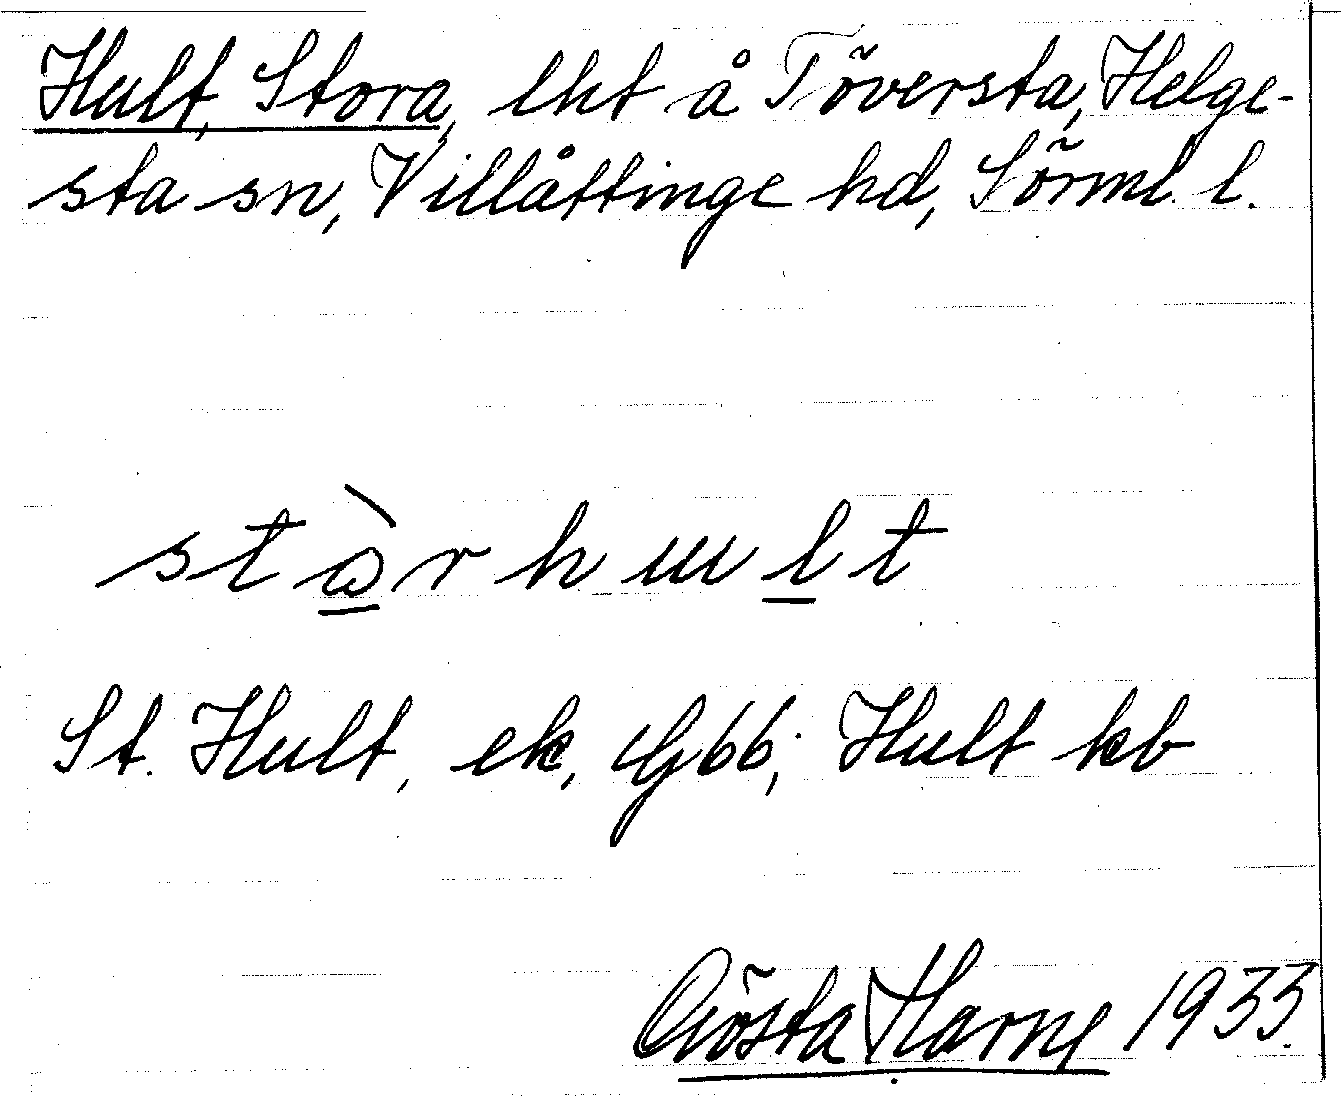 Hult, Stora, lht å Töversta, Helge-
sta sn, Villåttinge hd, Sörml. l.
stɷ̀rhɯlt
St. Hult, ek, G66; Hult kb
Gösta Harne 1933.